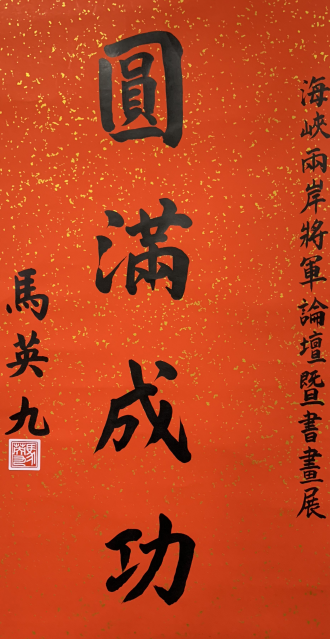 海峽兩岸將軍論壇暨書畫展
圓滿成功
馬英九